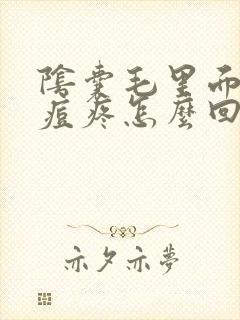 陰囊毛里而
痘疼怎麼回
亦夕亦夢